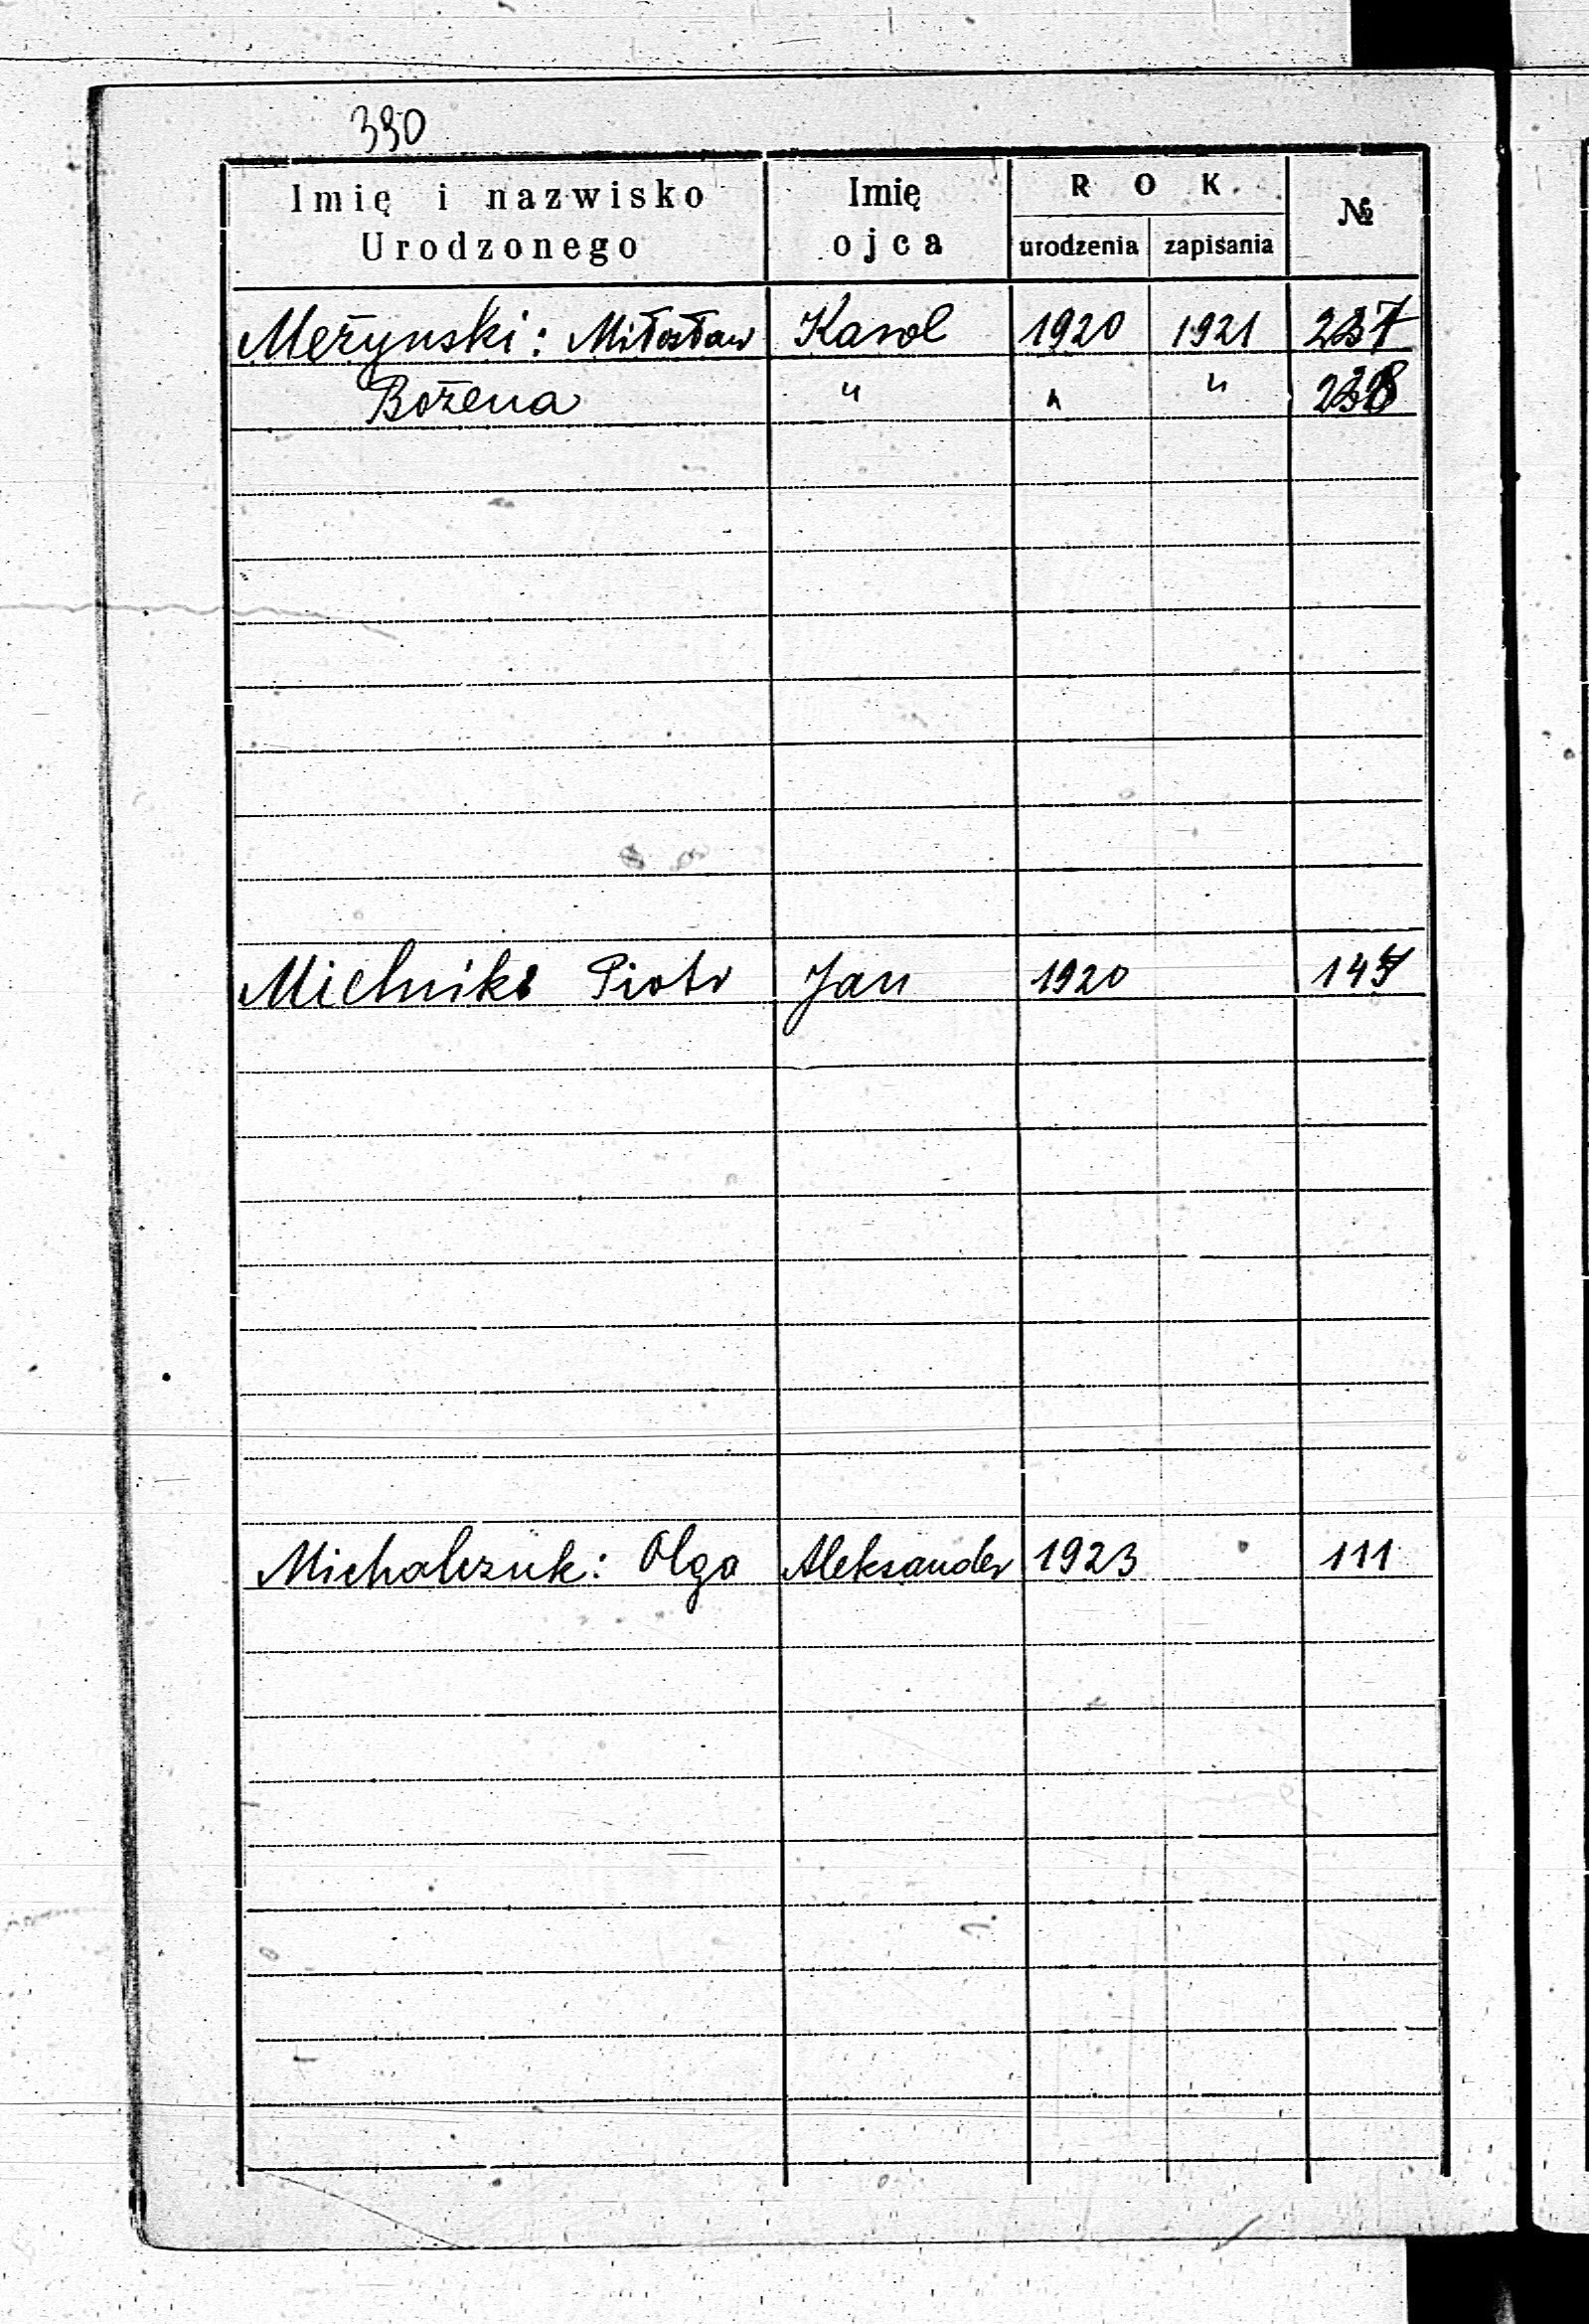 390
Imię i nazwisko Urodzonego | Imię ojca | ROK urodzenia | zapisania | №
Meżynski: Miłosław Karol 1920 1921 237
Bożena " " " 238
Mielnik: Piotr Jan 1920
Michalczuk: Olga Aleksander 1923 111